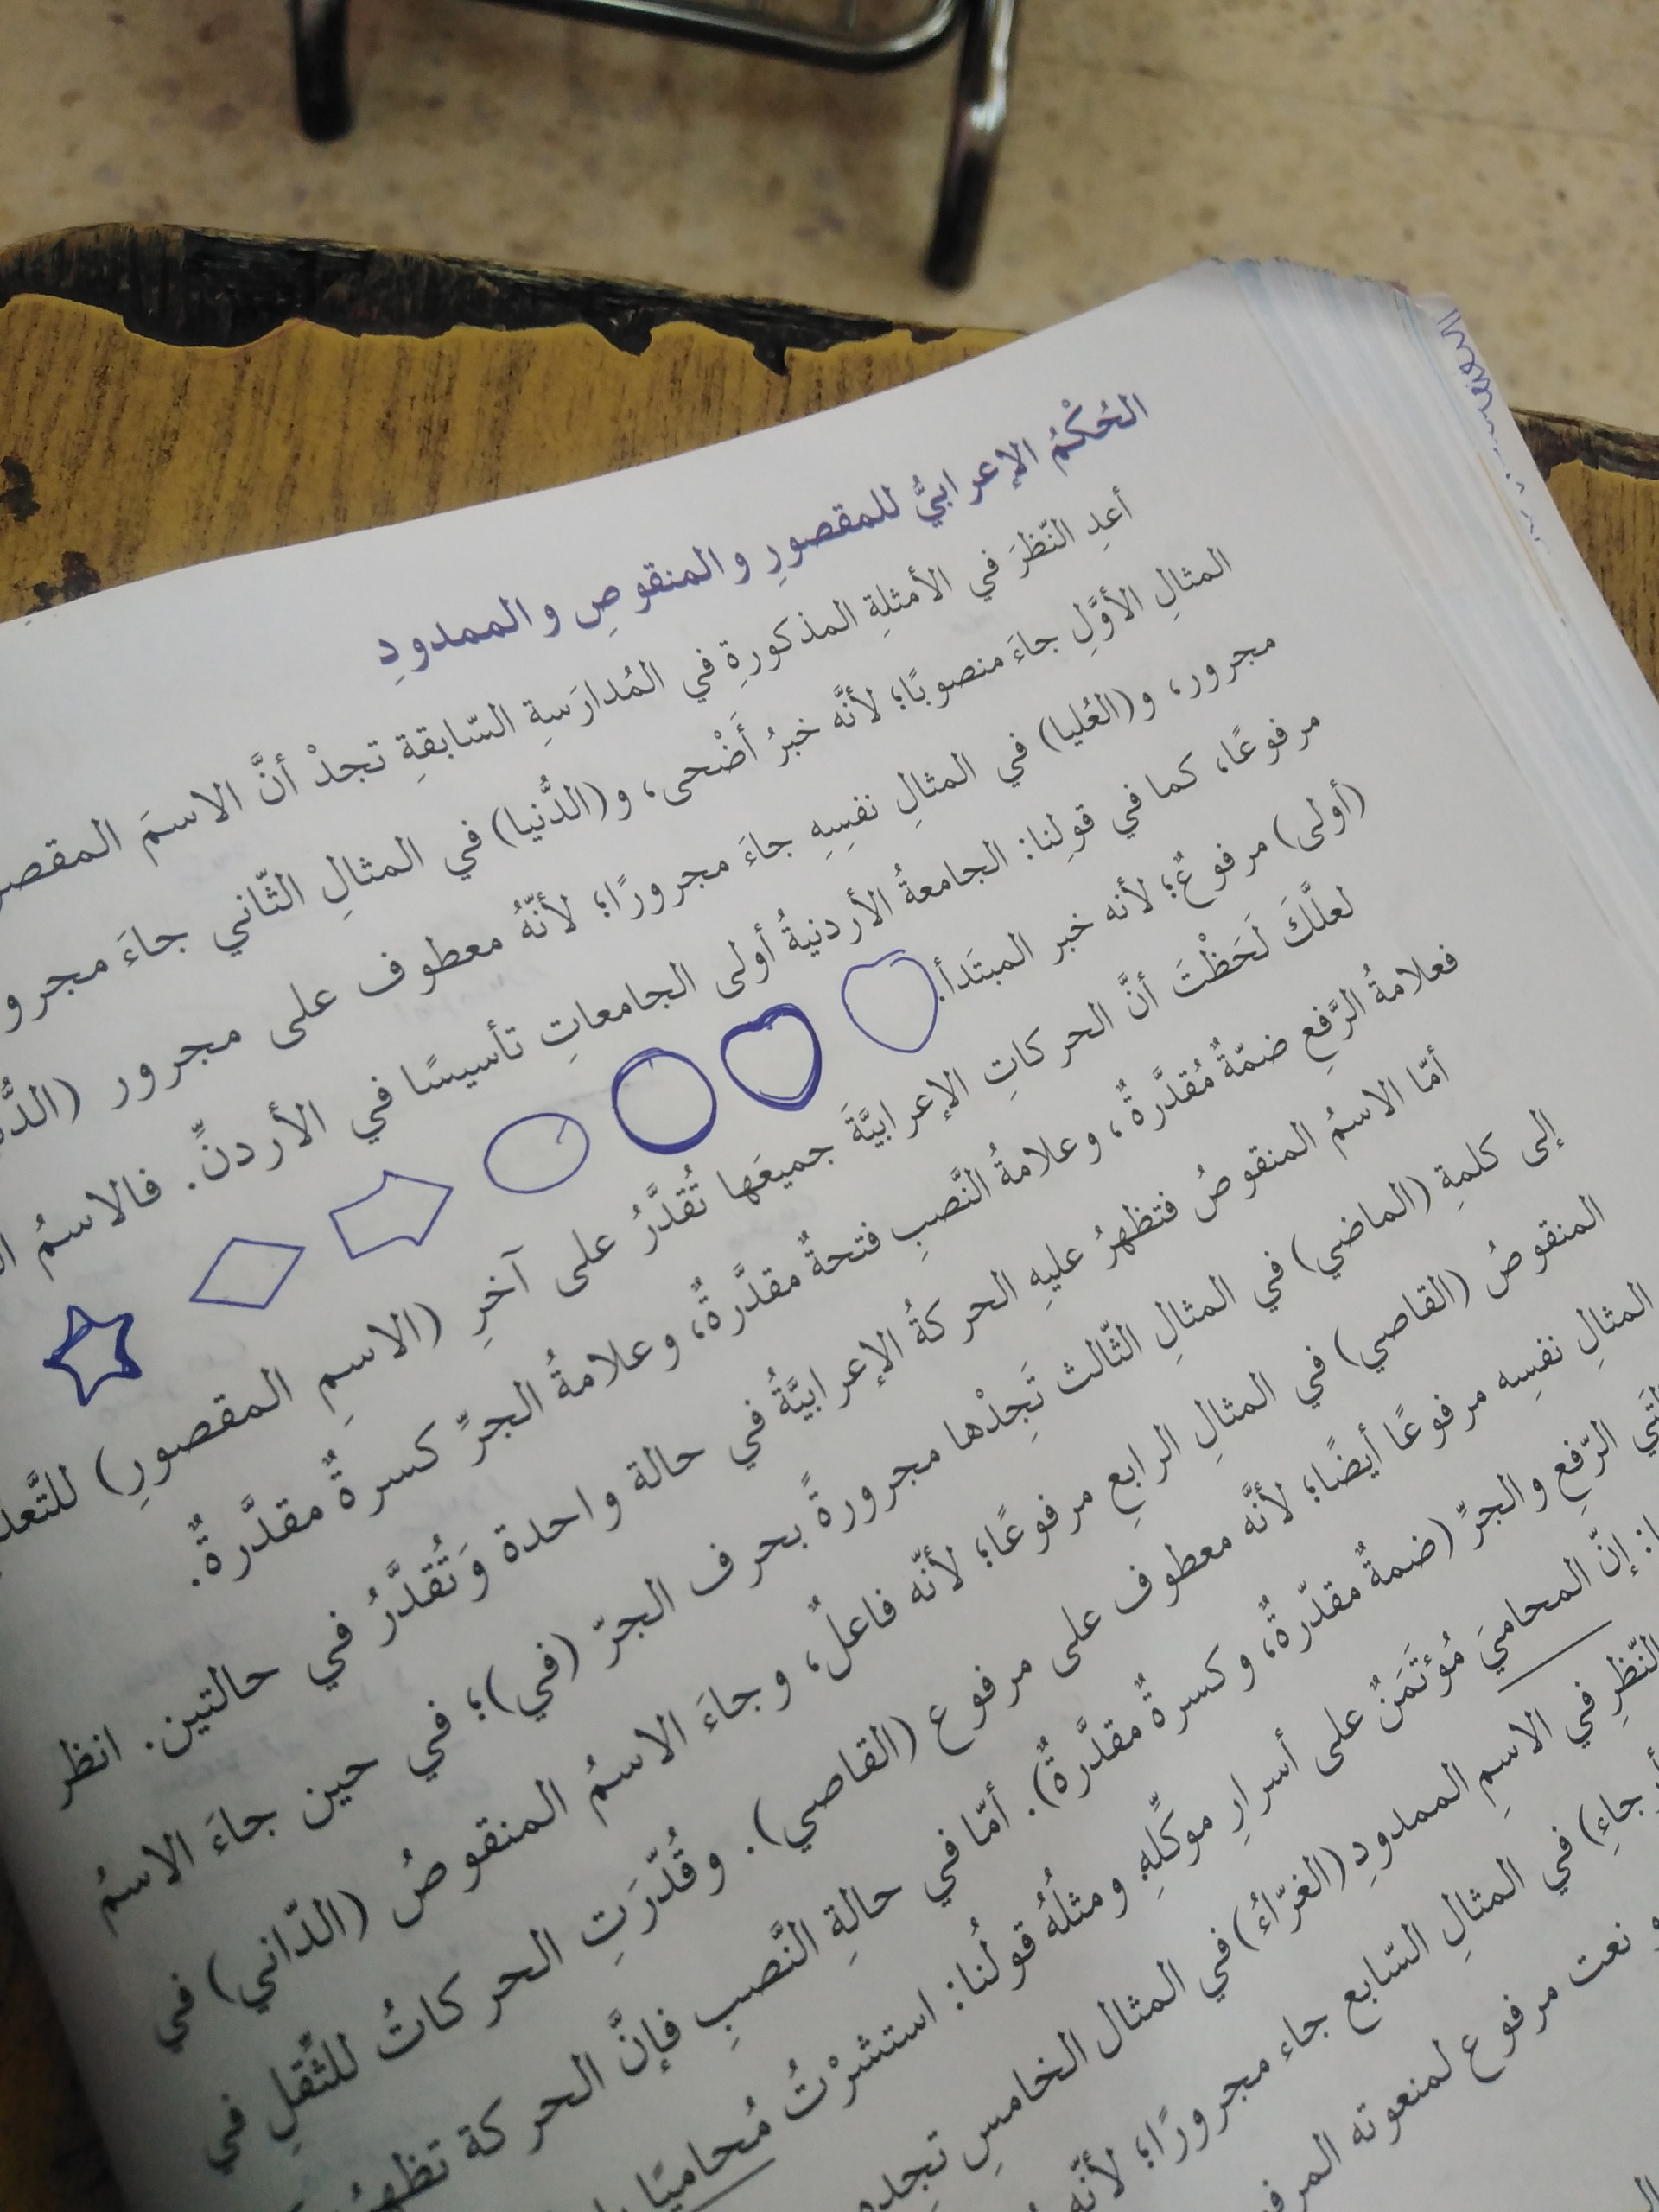 الحُكْمُ الإعرابيُّ للمقصورِ والمنقوصِ والممدودِ
أعدِ النّظرَ في الأمثلةِ المذكورةِ في المُدارَسةِ السّابقةِ تجدْ أنَّ الاسمَ
المثالِ الأوَّلِ جاءَ منصوبًا؛ لأنَّه خبرُ أَضْحى، و(الدُّنيا) في المثالِ الثّاني جاءَ
مجرور، و(العُليا) في المثالِ نفسِهِ جاءَ مجرورًا؛ لأنّهُ معطوف على مجرور
مرفوعًا، كما في قولِنا: الجامعةُ الأردنيةُ أولى الجامعاتِ تأسيسًا في الأردنِّ. فالاسمُ
(أولى) مرفوعٌ؛ لأنه خبر المبتَدأ.
لعلَّكَ لَحَظْتَ أنَّ الحركاتِ الإعرابيَّةَ جميعَها تُقدَّرُ على آخرِ (الاسمِ المقصورِ)
فعلامةُ الرَّفعِ ضمّةٌ مُقدَّرةٌ، وعلامةُ النَّصبِ فتحةٌ مقدَّرةٌ، وعلامةُ الجرِّ كسرةٌ مقدَّرةٌ.
أمّا الاسمُ المنقوصُ فتظهرُ عليهِ الحركةُ الإعرابيَّةُ في حالة واحدة وَتُقدَّرُ في حالتين. انظر
إلى كلمةِ (الماضي) في المثالِ الثّالث تَجِدْها مجرورةً بحرف الجرّ (في)؛ في حين جاءَ الاسمُ
المنقوصُ (القاصي) في المثالِ الرابعِ مرفوعًا؛ لأنّه فاعلٌ، وجاءَ الاسمُ المنقوصُ (الدّاني) في
المثالِ نفسِه مرفوعًا أيضًا؛ لأنَّه معطوف على مرفوع (القاصي). وقُدّرَتِ الحركاتُ للثِّقلِ في
الرّفعِ والجرِّ (ضمةٌ مقدّرةٌ، وكسرةٌ مقدَّرةٌ). أمّا في حالةِ النَّصبِ فإنَّ الحركة تظهرُ
إنّ المحاميَ مُؤتَمَنٌ على أسرارِ موكِّلِهِ. ومثلُه قولُنا: استشرْتُ مُحاميًا
النّظرِ في الاسمِ الممدودِ (الغرّاءُ) في المثال الخامسِ
في المثالِ السّابع جاء مجرورًا؛ لأنّه
نعت مرفوع لمنعوته